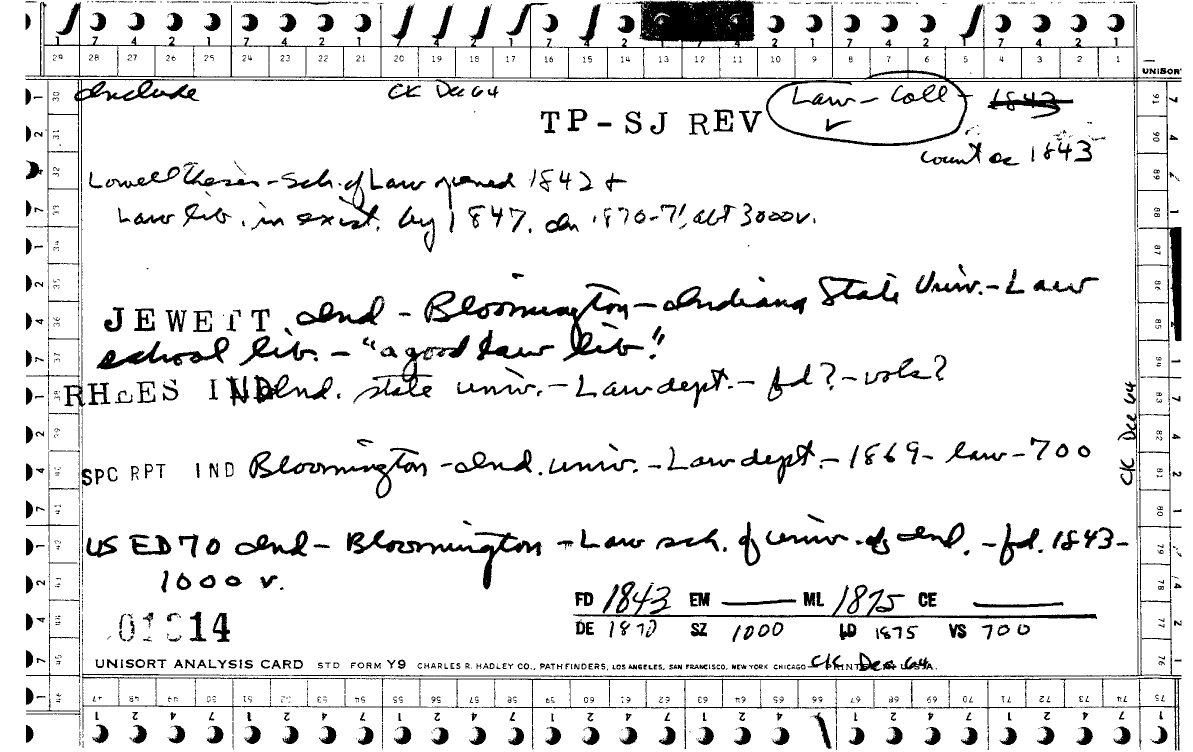 1 7 4 2 1 7 4 2 1 7 4 2 1 7 4 2 1 7 4 2 1
29 28 27 26 25 24 23 22 21 20 19 18 17 16 15 14 13 12 11 10 9 8 7 6 5 4 3 2 1
UNISORT
Include CK Dec 64 Law - Coll - 1843
TP-SJ REV ✓
count as 1843
Lowell thesis - Sch. of Law opened 1842 &
Law lib. in exist. by 1847. In 1870-71, abt 3000v.
JEWETT Ind - Bloomington - Indiana State Univ. - Law
school lib. - "a good law lib."
RHEES IND Ind. state univ. - Law dept. - fd? - vols?
CK Dec 64
SPC RPT IND Bloomington - Ind. univ. - Law dept. - 1869 - law - 700
US ED 70 Ind - Bloomington - Law sch. of univ. of Ind. - fd. 1843 -
1000 v.
FD 1843 EM ML 1875 CE
DE 1870 SZ 1000 LD 1875 VS 700
01814
UNISORT ANALYSIS CARD STD FORM Y9 CHARLES R. HADLEY CO., PATHFINDERS, LOS ANGELES, SAN FRANCISCO, NEW YORK CHICAGO - PRINTED IN U.S.A.
CK Dec 64
47 48 49 50 51 52 53 54 55 56 57 58 59 60 61 62 63 64 65 66 67 68 69 70 71 72 73 74 75